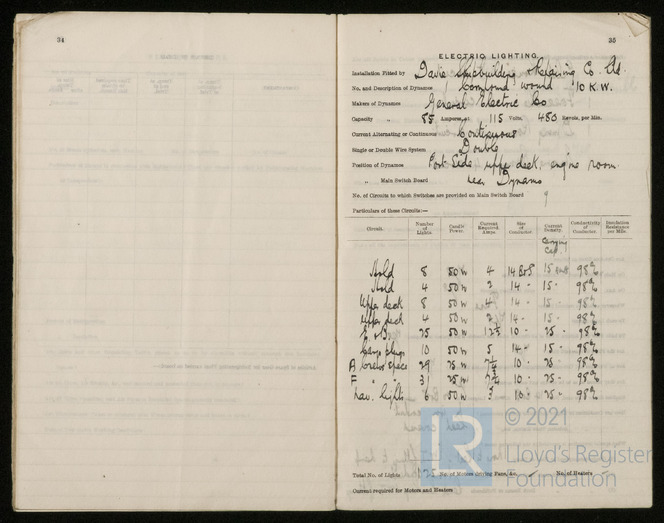 34
35
ELECTRIC LIGHTING.
Installation Fitted by Davie Shipbuilding & Repairing Co. Ltd.
No. and Description of Dynamos Compound wound 10 K.W.
Makers of Dynamos General Electric Co
Capacity 85 Amperes, at 115 Volts, 480 Revols. per Min.
Current Alternating or Continuous Continuous
Single or Double Wire System Double
Position of Dynamos Port Side upper deck, engine room
" Main Switch Board near Dynamo
No. of Circuits to which Switches are provided on Main Switch Board 9
Particulars of these Circuits:—
Circuit. Number of Lights. Candle Power. Current Required. Amps. Size of Conductor. Current Density. Conductivity of Conductor. Insulation Resistance per Mile.
Carrying Cap.
Hold 8 50w 4 14 B&S 15 98%
Hold 4 50w 2 14 " 15 " 98%
Upper deck 8 50w 4 14 " 15 " 98%
Upper deck 4 50w 2 14 " 15 " 98%
25 50w 12½ 10 " 25 " 98%
10 50w 5 14 " 15 " 98%
A 29 25w 10 " 25 98%
F " " 31 25w 10 " 25 " 98%
Nav. lights 6 50w 3 10 " 25 " 98%
Total No. of Lights 125 No. of Motors driving Fans, &c. No. of Heaters
Current required for Motors and Heaters
LR © 2021
Lloyd's Register
Foundation